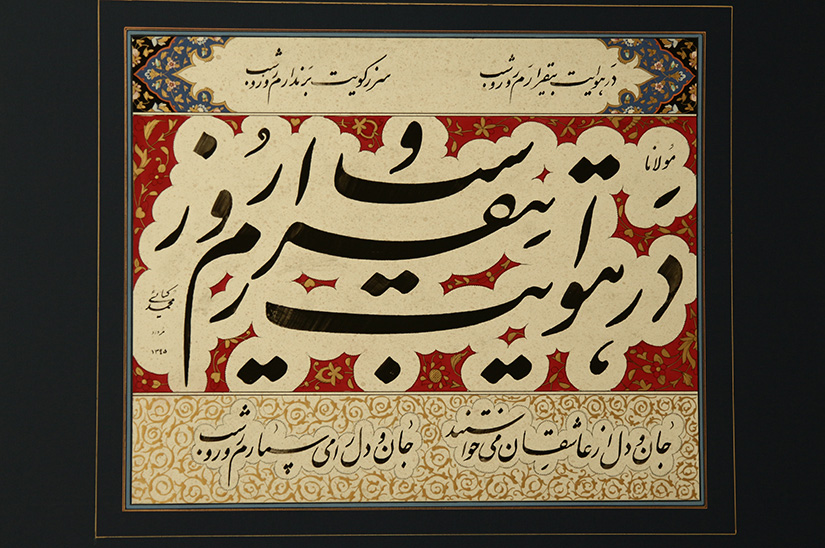 در هوایت بیقرارم روز و شب سر ز کویت برندارم روز و شب
مولانا
در هوایت بیقرارم روز و شب
محمد
جان و دل از عاشقان می خواستند جان و دل را می سپارم روز و شب